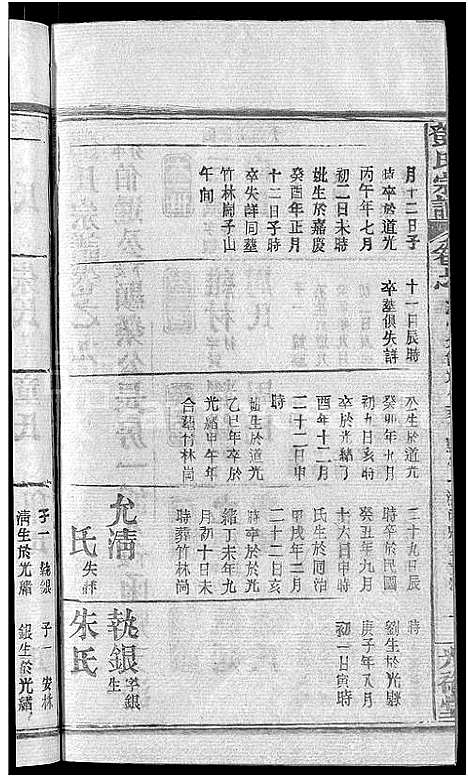 鄧氏宗譜
月十二日子
時卒於道光
丙午年七月
初二日未時
妣生於嘉慶
癸酉年正月
十二日子時
卒失詳同墓
竹林崗子山
午向
十一日辰時
卒墓俱失詳
公生於道光
癸卯年九月
初九日亥時
卒於光緒丁
酉年十二月
二十二日申
時
妣生於道光
乙巳年卒於
光緒甲午年
合葬竹林崗
二十九日辰
時卒於民國
癸丑年九月
十六日申時
氏生於同治
甲戌年二月
二十二日亥
時卒於光
緒丁未年九
月初十日未
時葬竹林崗
允清
氏失詳
子一執銀
清生於光緒
劉生於光緒
庚子年又八月
初一日寅時
執銀字銀生
朱氏
子一安林
銀生於光緒